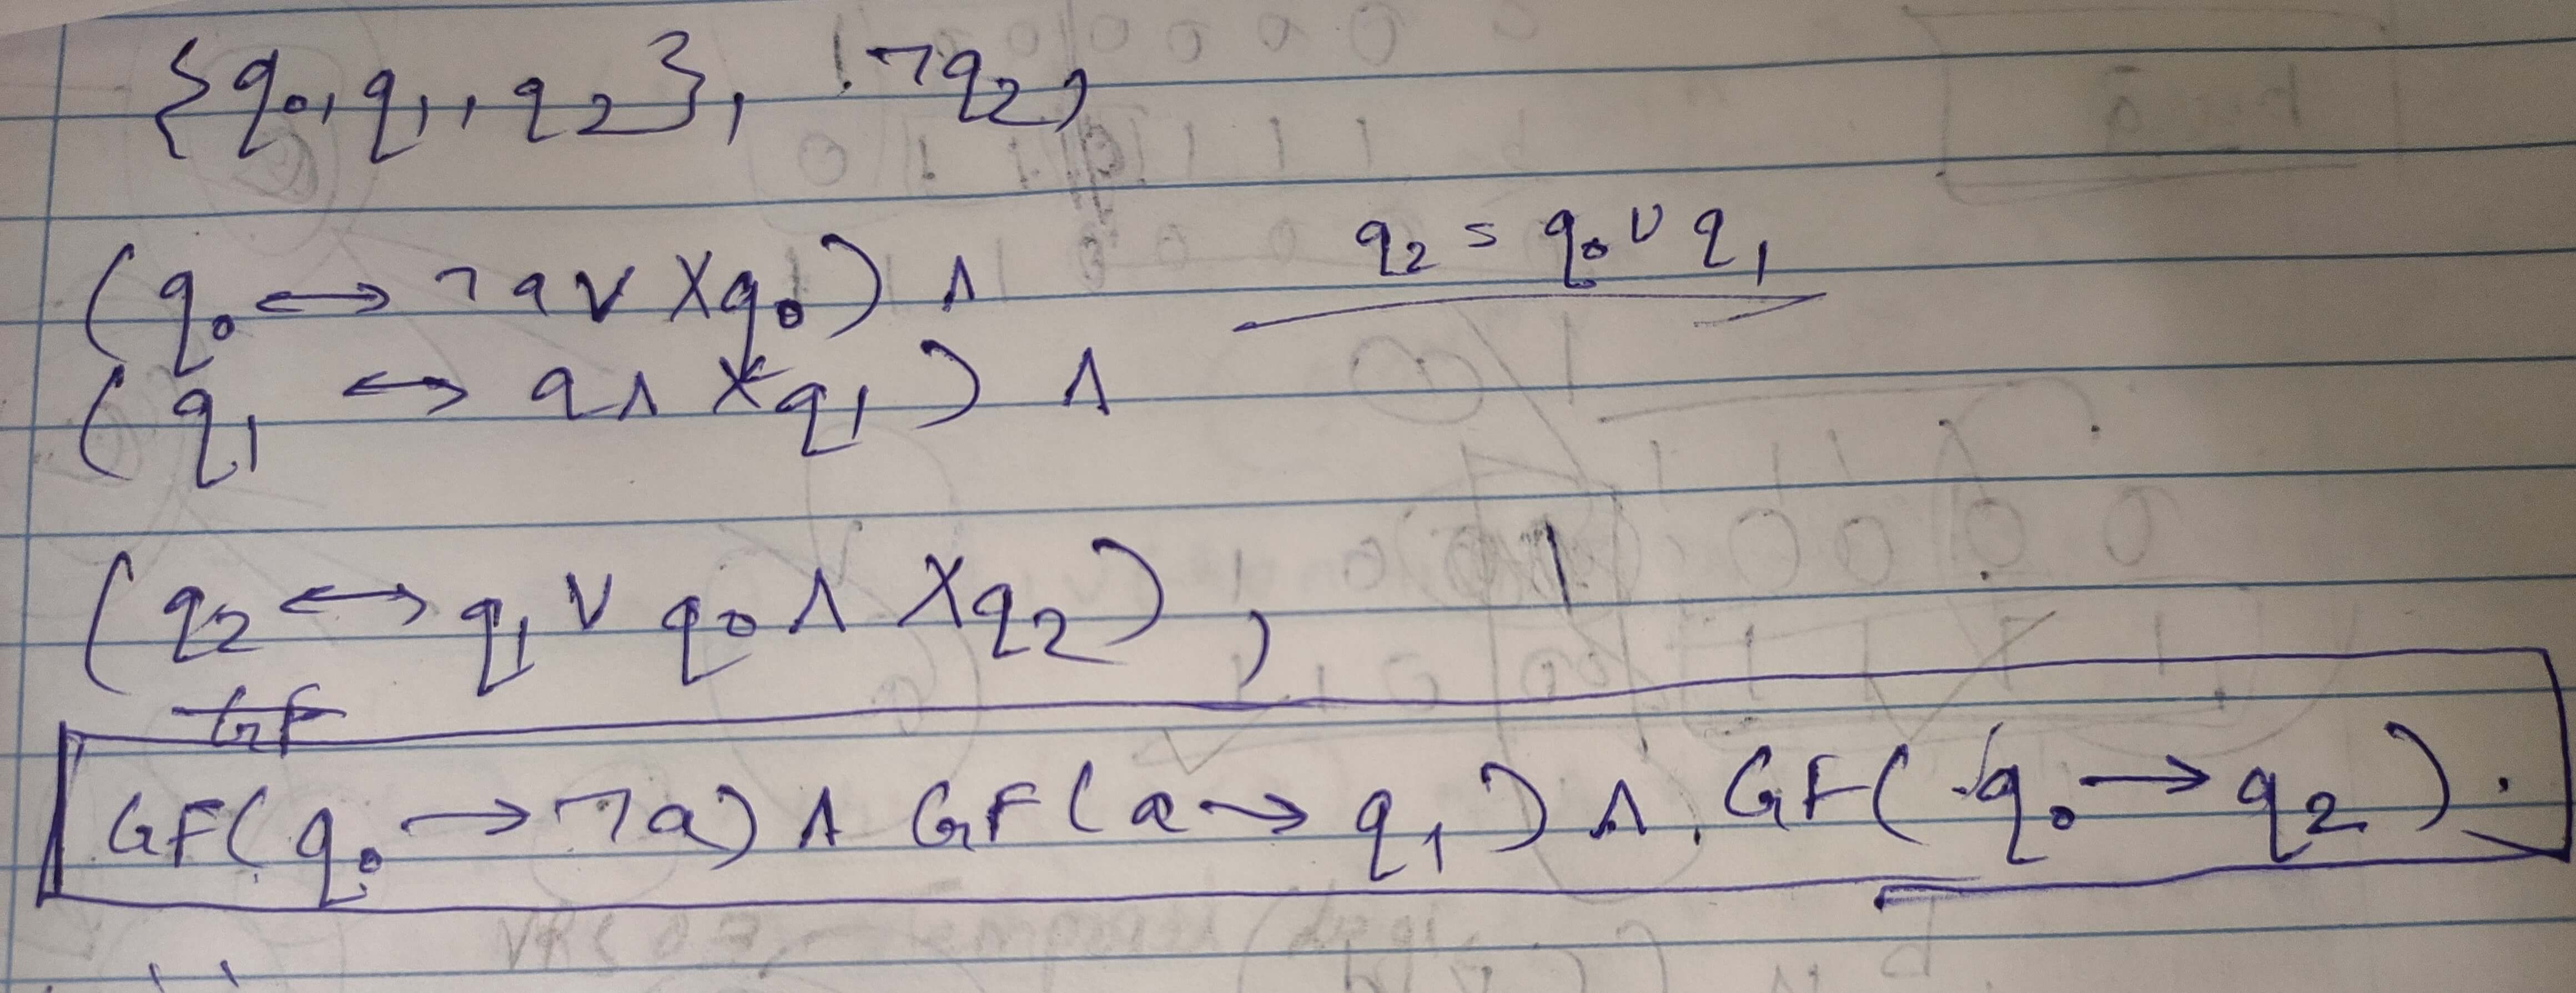 {q₀, q₁, q₂}, ¬q₂,
(q₀ ↔ ¬a ∨ Xq₀) ∧
q₂ = q₀ ∨ q₁
(q₁ ↔ a ∧ Xq₁) ∧
(q₂ ↔ q₁ ∨ q₀ ∧ Xq₂),
GF(q₀ → ¬a) ∧ GF(a → q₁) ∧ GF(q₀ → q₂).